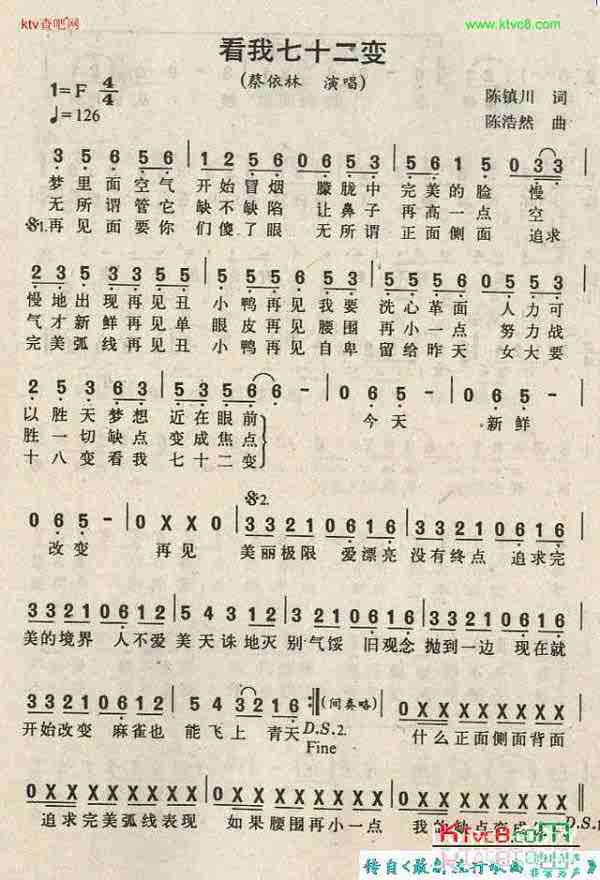 ktv查吧网
www.ktvc8.com
看我七十二变
(蔡依林 演唱)
1=F 4/4
♩=126
陈镇川 词
陈浩然 曲
3 5 6 5 6 | 1 2 0 6 5 3 | 5 5 6 1 5 0 3 3 |
梦里面空气 开始冒烟 朦胧中 完美的脸 慢
无所谓管它 缺不缺陷 让鼻子 再高一点 空
1.再见面要你 们傻了眼 无所谓 正面侧面 追求
2 3 5 3 5 5 3 | 5 5 3 5 5 3
慢地出现再见丑 小鸭再见我要 洗心革面 人力可
气才新鲜再见单 眼皮再见腰围 再小一点 努力战
完美弧线再见丑 小鸭再见自卑 留给昨天 女大要
2 5 3 6 3 | 5 3 5 6 6 - | 0 6 5 - | 0 6 5 - |
以胜天梦想 近在眼前 今天 新鲜
胜一切缺点 变成焦点
十八变看我 七十二变
2.
0 6 5 - | 0 X X 0 | 3 3 2 1 0 6 1 6 | 3 3 2 1 0 6 1 6 |
改变 再见 美丽极限 爱漂亮 没有终点 追求完
3 3 2 1 0 6 1 2 | 5 4 3 1 2 | 3 3 2 1 0 6 1 6 | 3 3 2 1 0 6 1 6 |
美的境界 人不爱 美天诛地灭 别气馁 旧观念 抛到一边 现在就
3 3 2 1 0 6 1 2 | 5 4 3 2 1 6 :‖ (间奏略) | 0 X X X X X X X |
开始改变 麻雀也 能飞上 青天 D.S.2. 什么正面侧面背面
Fine
0 X X X X X X X | 0 X X X X X X X | 0 X X X X X X X
追求完美弧线表现 如果腰围再小一点 我的缺点变成 D.S.1
Ktvc8.com